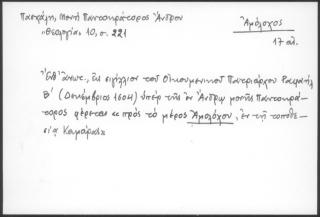 Πασχάλη, Μονή Παντοκράτορος Άνδρου
«Θεολογία» 10, σ. 221
Ἀμόλοχος
17 αἰ.
Ἐνθ' ἀνωτ., εἰς σιγίλλιον τοῦ Οἰκουμενικοῦ Πατριάρχου Ραφαήλ
Β' (Δεκέμβριος 1604) ὑπέρ τῆς ἐν Ἄνδρῳ μονῆς Παντοκρά-
τορος φέρεται καὶ πρὸς τὸ μέρος Ἀμολόχου, ἐν τῇ τοποθε-
σίᾳ Καμάρας»